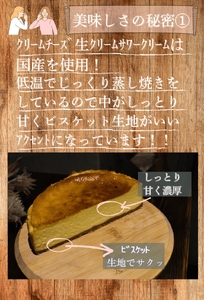 美味しさの秘密①
クリームチーズ生クリームサワークリームは
国産を使用！
低温でじっくり蒸し焼きを
しているので中がしっとり
甘くビスケット生地がいい
アクセントになっています！！
しっとり
甘く濃厚
ビスケット
生地でサクッ